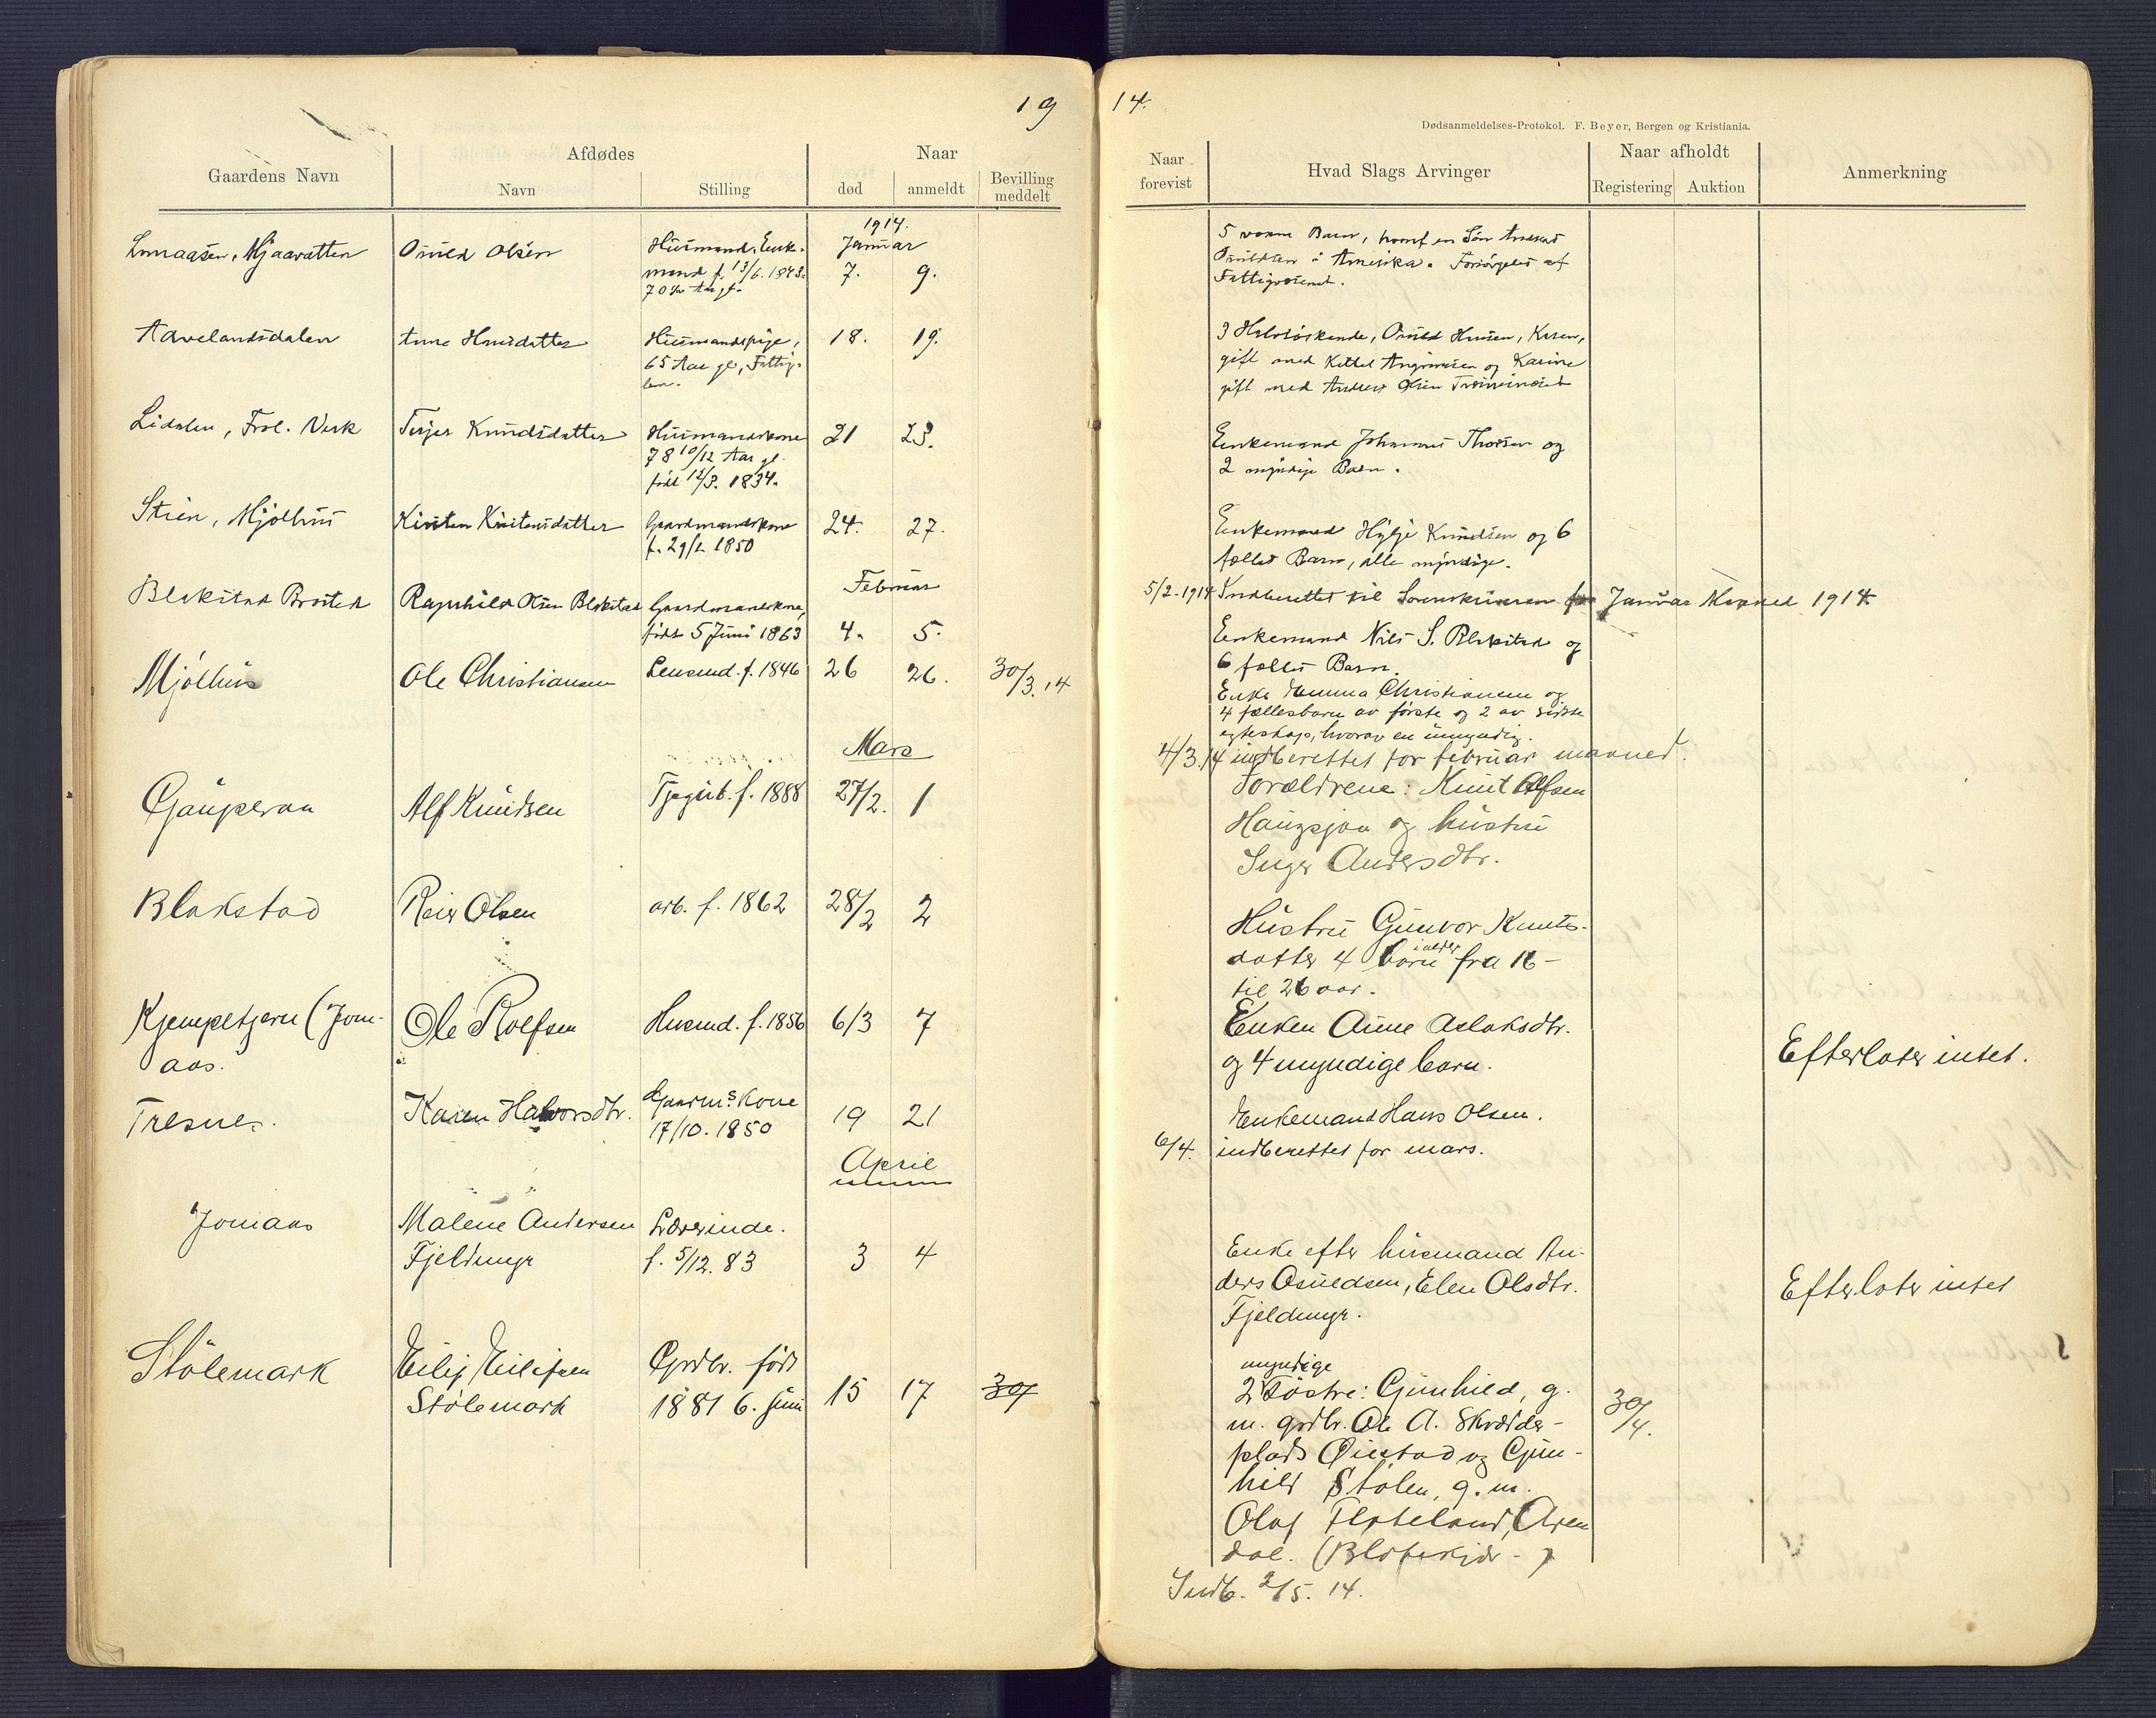 19
14.
Dødsanmeldelses-Protokol. F. Beyer, Bergen og Kristiania.
Gaardens Navn
Afdødes
Navn
Stilling
Naar
død
anmeldt
Bevilling meddelt
Naar forevist
Hvad Slags Arvinger
Naar afholdt
Registering
Auktion
Anmerkning
1914.
Januar
Mjaavatten
Osuld Olsen
Husmand, Enke-
mand f. 13/6. 1843.
70 Aar gl.
7.
9.
5 voxne Børn, hvoraf en Søn
Osuldsen i Amerika. Forsørgedes af
Fattigvæsenet.
Aavelandsdalen
Anne Hansdatter
Husmandspige,
65 Aar gl, Fattig-
lem.
18.
19.
3 Halvsøskende, Osuld Hansen, Karen,
gift med Kittel Angrimsen og Karine
gift med Anders Olsen
Lidalen, Frol. Verk
Terjer Knudsdatter
Husmandskone
78 10/12 Aar gl.
født 12/3. 1834.
21
23.
Enkemand Johannes Thorsen og
2 myndige Børn.
Stien, Mjølhus
Kirsten Kristensdatter
Gaardmandskone
f. 29/1 1850
24.
27.
Enkemand Hylje Knudsen og 6
fælles Børn, alle myndige.
Februar
5/2-1914 Indberettet til Sorenskriveren for Januar Maaned 1914.
Blakstad Brosted
Ragnhild Olsen Blakstad
Gaardmandskone,
født 5 Juni 1863
4.
5.
Enkemand Nils S. Blakstad og
6 fælles Børn.
Mjølhus
Ole Christiansen
Lensmd. f. 1846
26
26.
30/3.14
Enke Emma Christiansen og
4 fællesbarn av første og 2 av sidste
egteskap, hvorav en umyndig.
Mars
4/3.14 indberettet for februar maaned.
Gauperaa
Alf Knudsen
Tjgut. f. 1888
27/2.
1
Forældrene: Knut Alfsen
Haugsjaa og hustru
Inger Andersdtr.
Blakstad
Reier Olsen
arb. f. 1862
28/2
2
Hustru Gunvor Knuts-
datter 4 barn i alder fra 16-
til 26 aar.
Kjempetjern (Jom-
aas.
Ole Rolfsen
Husmd. f. 1856
6/3
7
Enken Anne Aslaksdtr.
og 4 myndige barn.
Efterlater intet.
Tresnes.
Karen Halvorsdtr.
Gaarms. kone
17/10. 1850
19
21
Enkemand Hans Olsen.
6/4. indberettet for mars.
April
Jomaas
Malene Andersen
Fjeldmyr
Lærerinde.
f. 5/12. 83
3
4
Enke efter husmand An-
ders Osuldsen, Elen Olsdtr.
Fjeldmyr.
Efterlater intet
Stölemark
Eilif Eilifsen
Stølemark
Grdbr. født
1881 6. juni
15
17
30/
myndige
2 Søstre: Gunhild, g.
m. grdbr. Ole A. Skrædder-
plads Øiestad og Gun-
hild Stølen, g. m.
Olaf Flateland, Aren
dal.
30/4.
Indb. 2/5. 14.